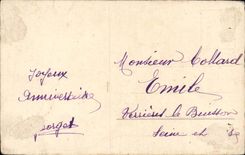 Joyeux
anniversaire
Monsieur Collard
Emile
Verrières le Buisson
Seine et